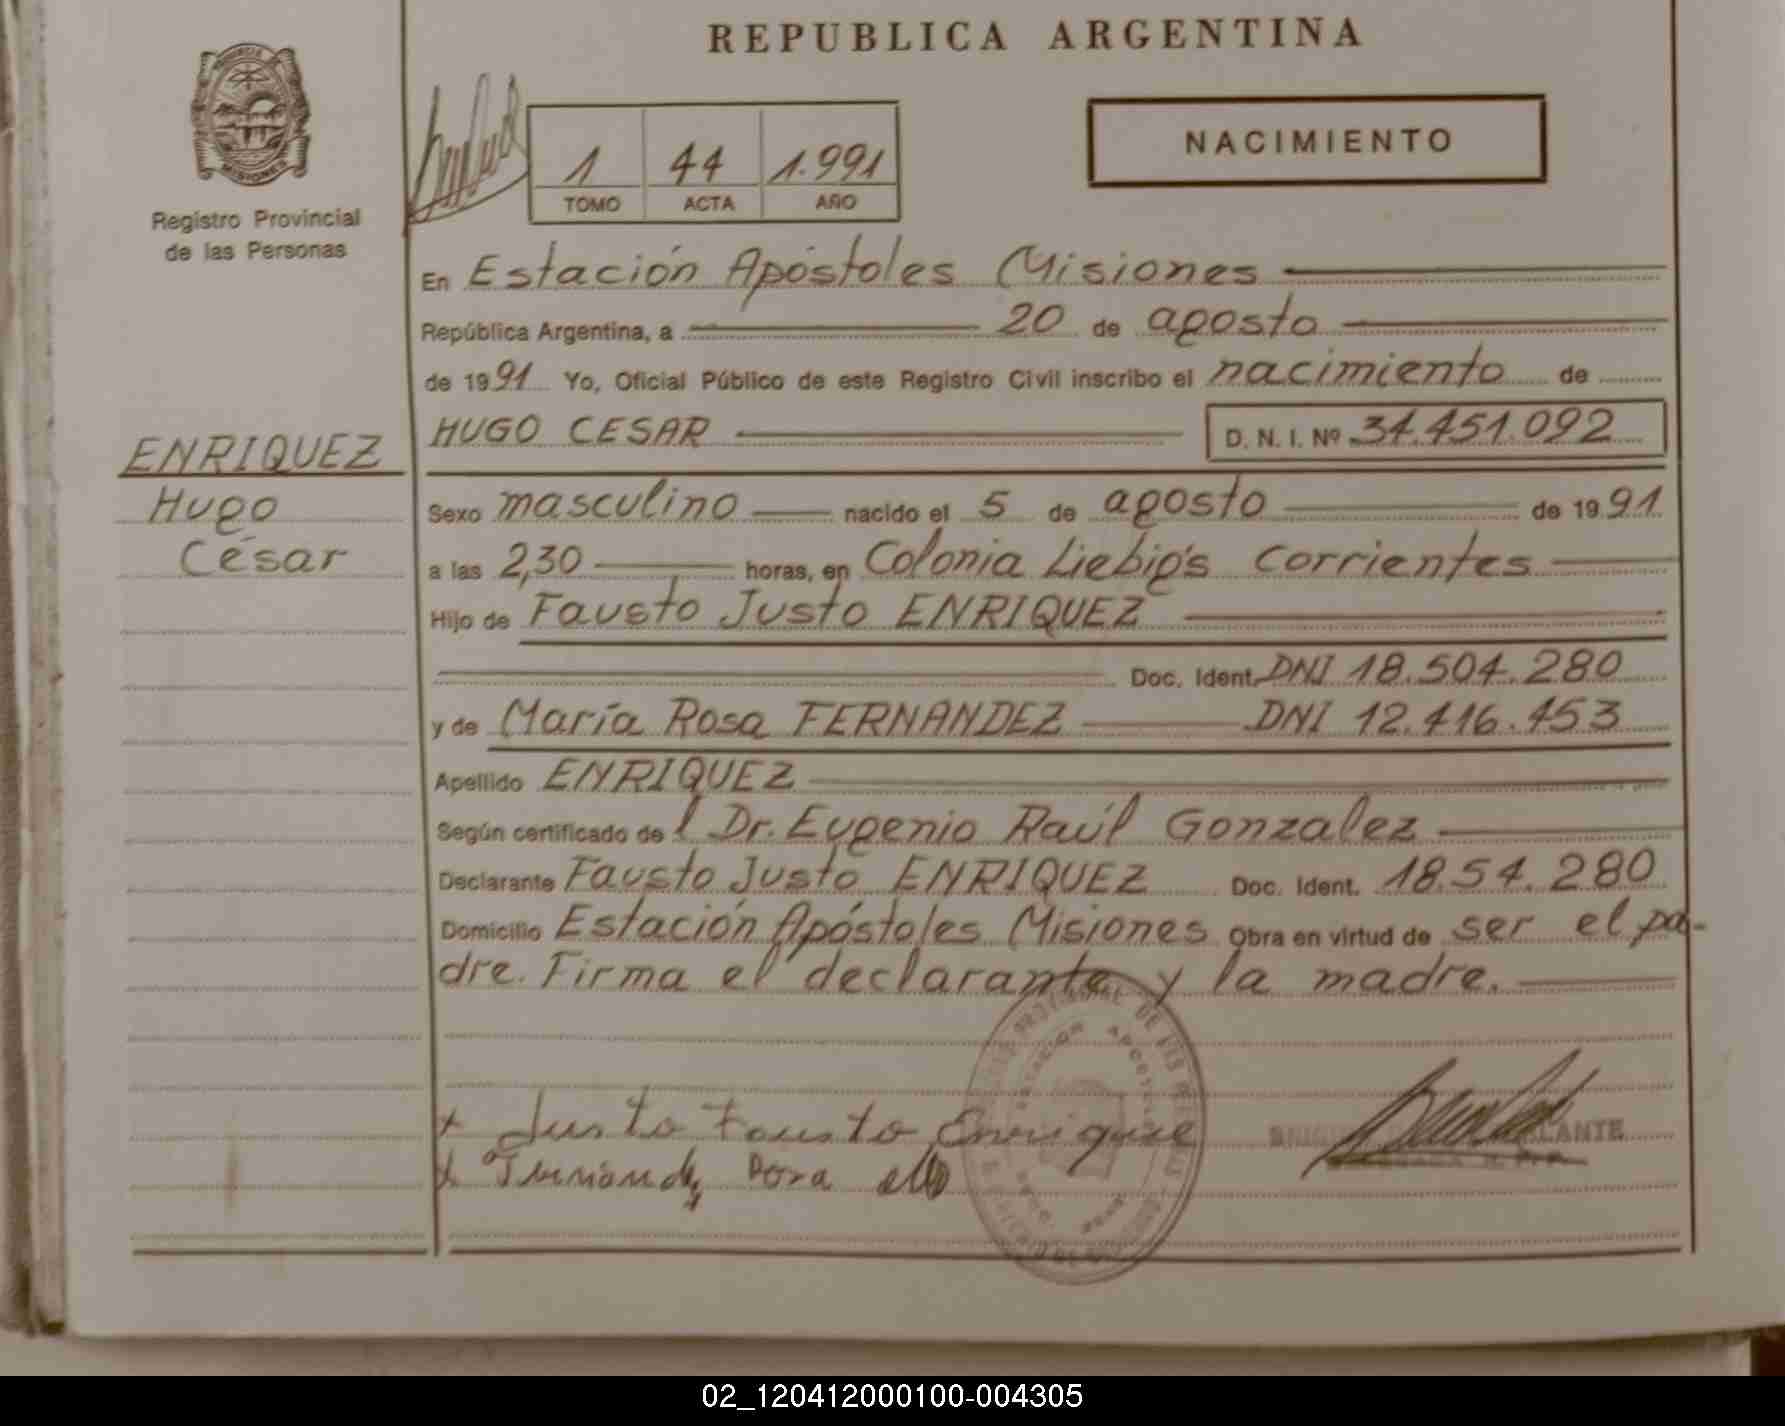 REPUBLICA ARGENTINA
MISIONES
Registro Provincial
de las Personas
1 44 1.991
TOMO ACTA AÑO
NACIMIENTO
En Estación Apóstoles Misiones
República Argentina, a 20 de agosto
de 1991 Yo, Oficial Público de este Registro Civil inscribo el nacimiento de
HUGO CESAR D. N. I. Nº 34.451.092
ENRIQUEZ
Hugo
César
Sexo masculino nacido el 5 de agosto de 1991
a las 2,30 horas, en Colonia Liebig's Corrientes
Hijo de Fausto Justo ENRIQUEZ
Doc. Ident. DNI 18.504.280
y de María Rosa FERNANDEZ DNI 12.416.453
Apellido ENRIQUEZ
Según certificado de l Dr. Eugenio Raúl Gonzalez
Declarante Fausto Justo ENRIQUEZ Doc. Ident. 18.54.280
Domicilio Estación Apóstoles Misiones Obra en virtud de ser el pa-
dre. Firma el declarante y la madre.
Justo Fausto Enrique
ESTACION APOSTOLES
02_120412000100-004305